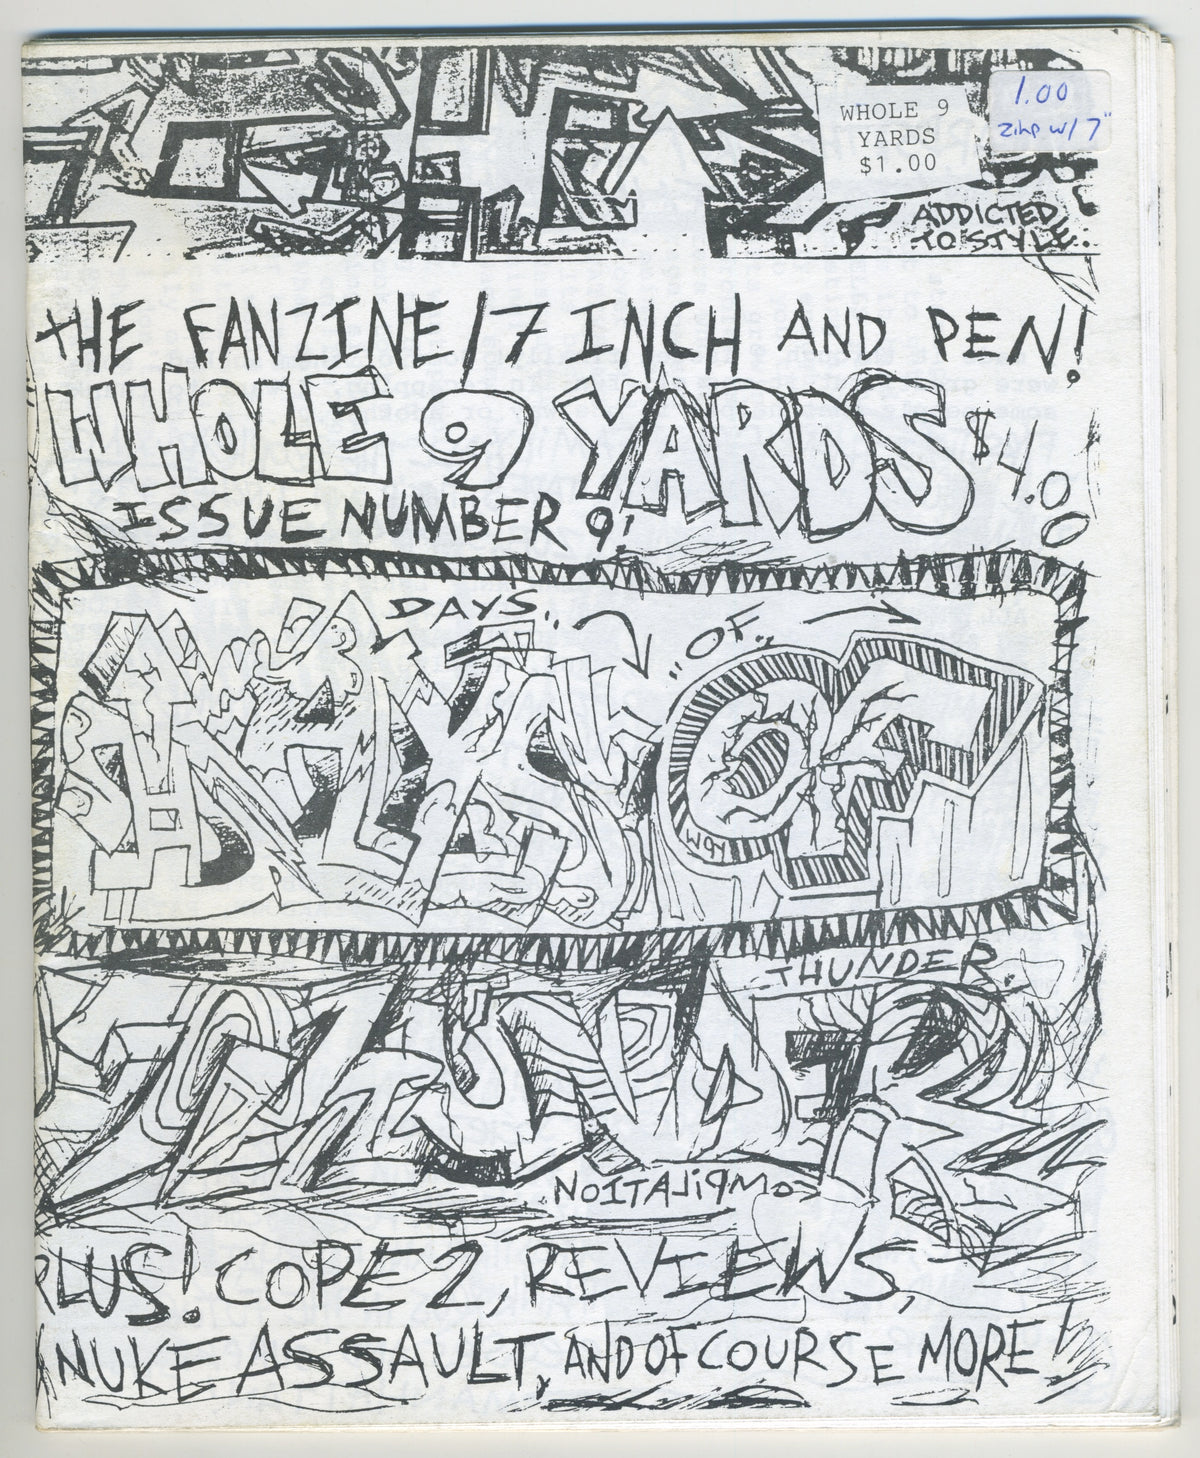 WHOLE 9
YARDS
$1.00
1.00
zine w/ 7"
ADDICTED
TO STYLE.
THE FANZINE/7 INCH AND PEN!
WHOLE 9 YARDS $4.00
ISSUE NUMBER 9!
DAYS..
"OF"
DAYS OF
THUNDER.
THUNDER
NOITALIPMOC
PLUS! COPE 2, REVIEWS,
NUKE ASSAULT, AND OF COURSE MORE!